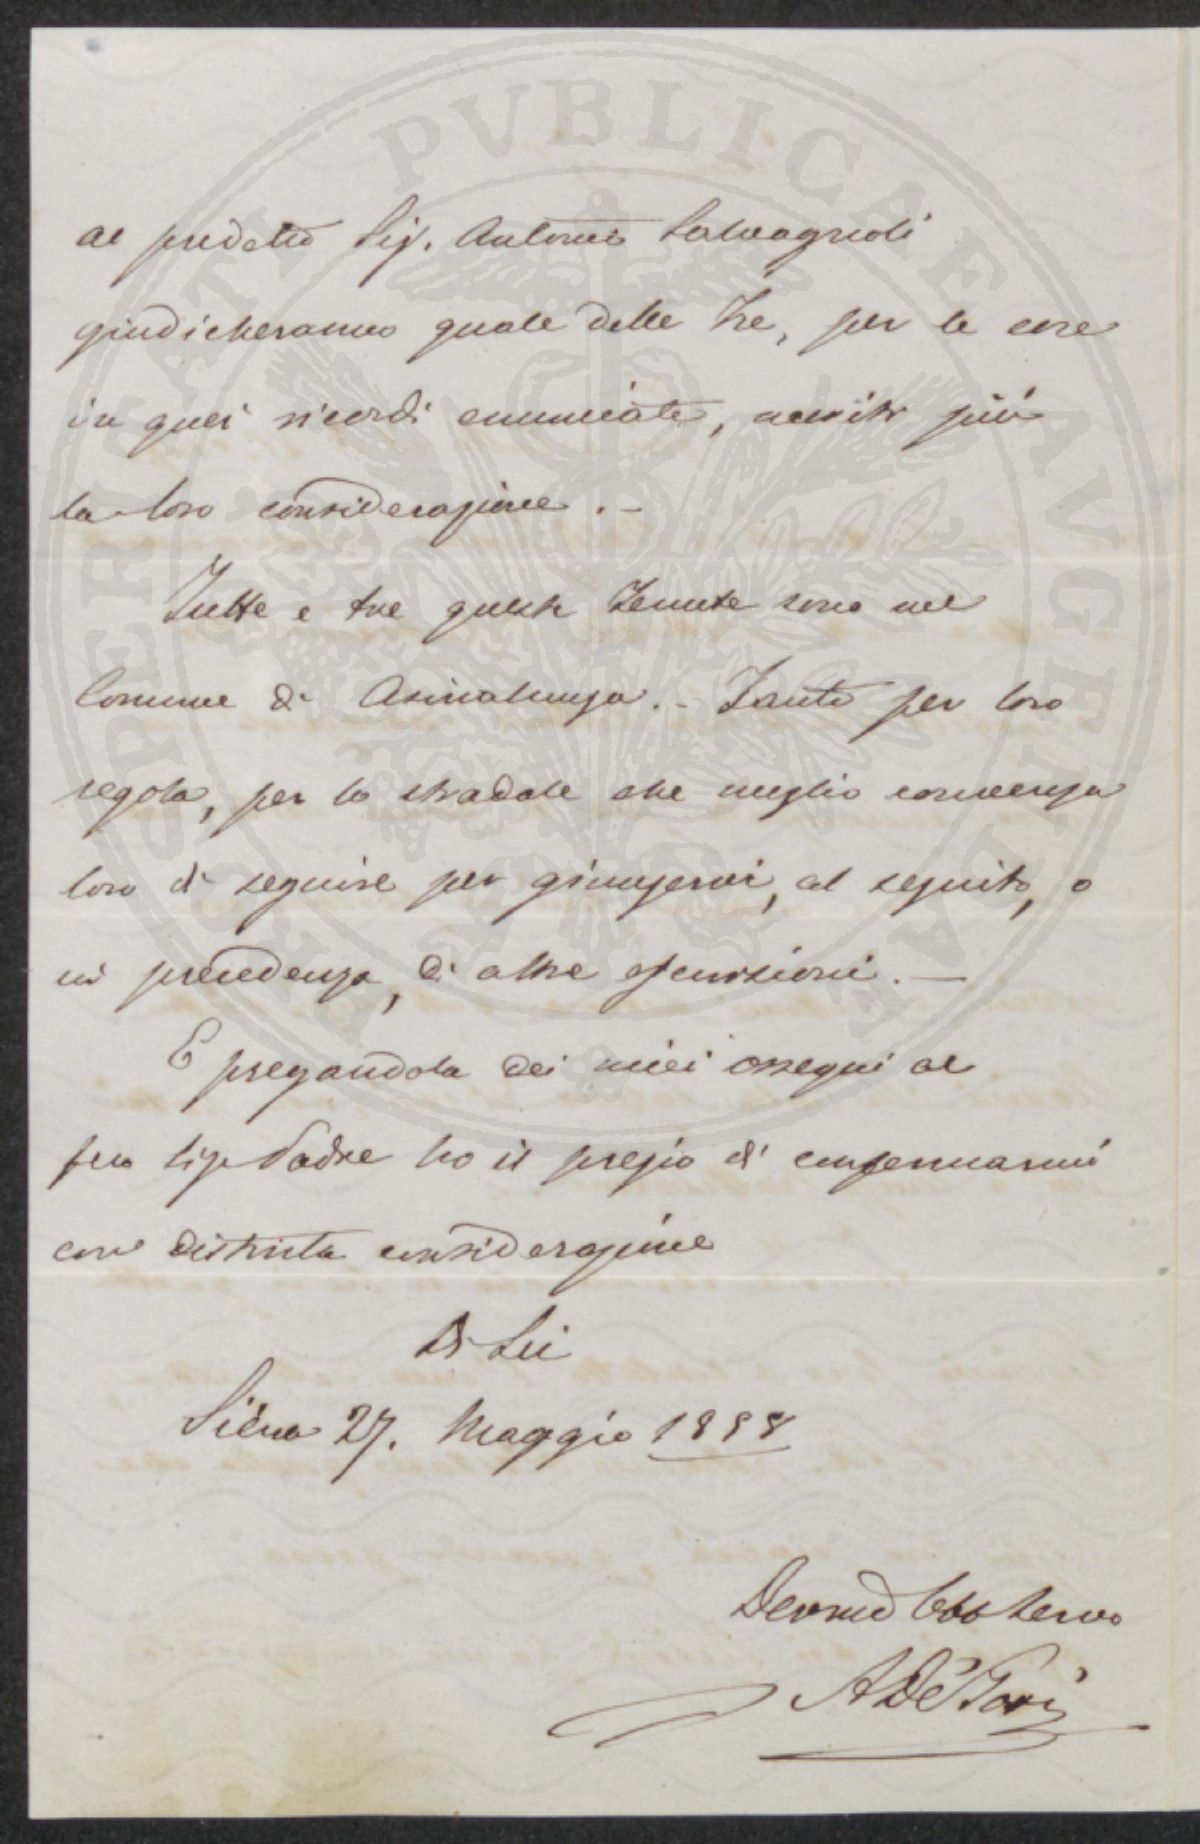 al predetto Sig. Antonio Salvagnoli
giudicheranno quale delle tre, per le cose
in quei ricordi enunciate, meriti più
la loro considerazione. -
Tutte e tre queste Tenute sono nel
Comune di Asinalunga. - Tanto per loro
regola, per lo stradale che meglio convenga
loro di seguire per giungervi, al seguito, o
in precedenza, di altre escursioni. —
E pregandola dei miei ossequi al
Sig. Padre ho il pregio di confermarmi
con distinta considerazione
Di Lei
Siena 27. Maggio 1858
Devmo Obb Servo
A De' Gori
PERITATI PVBLICAE AVGENDAE